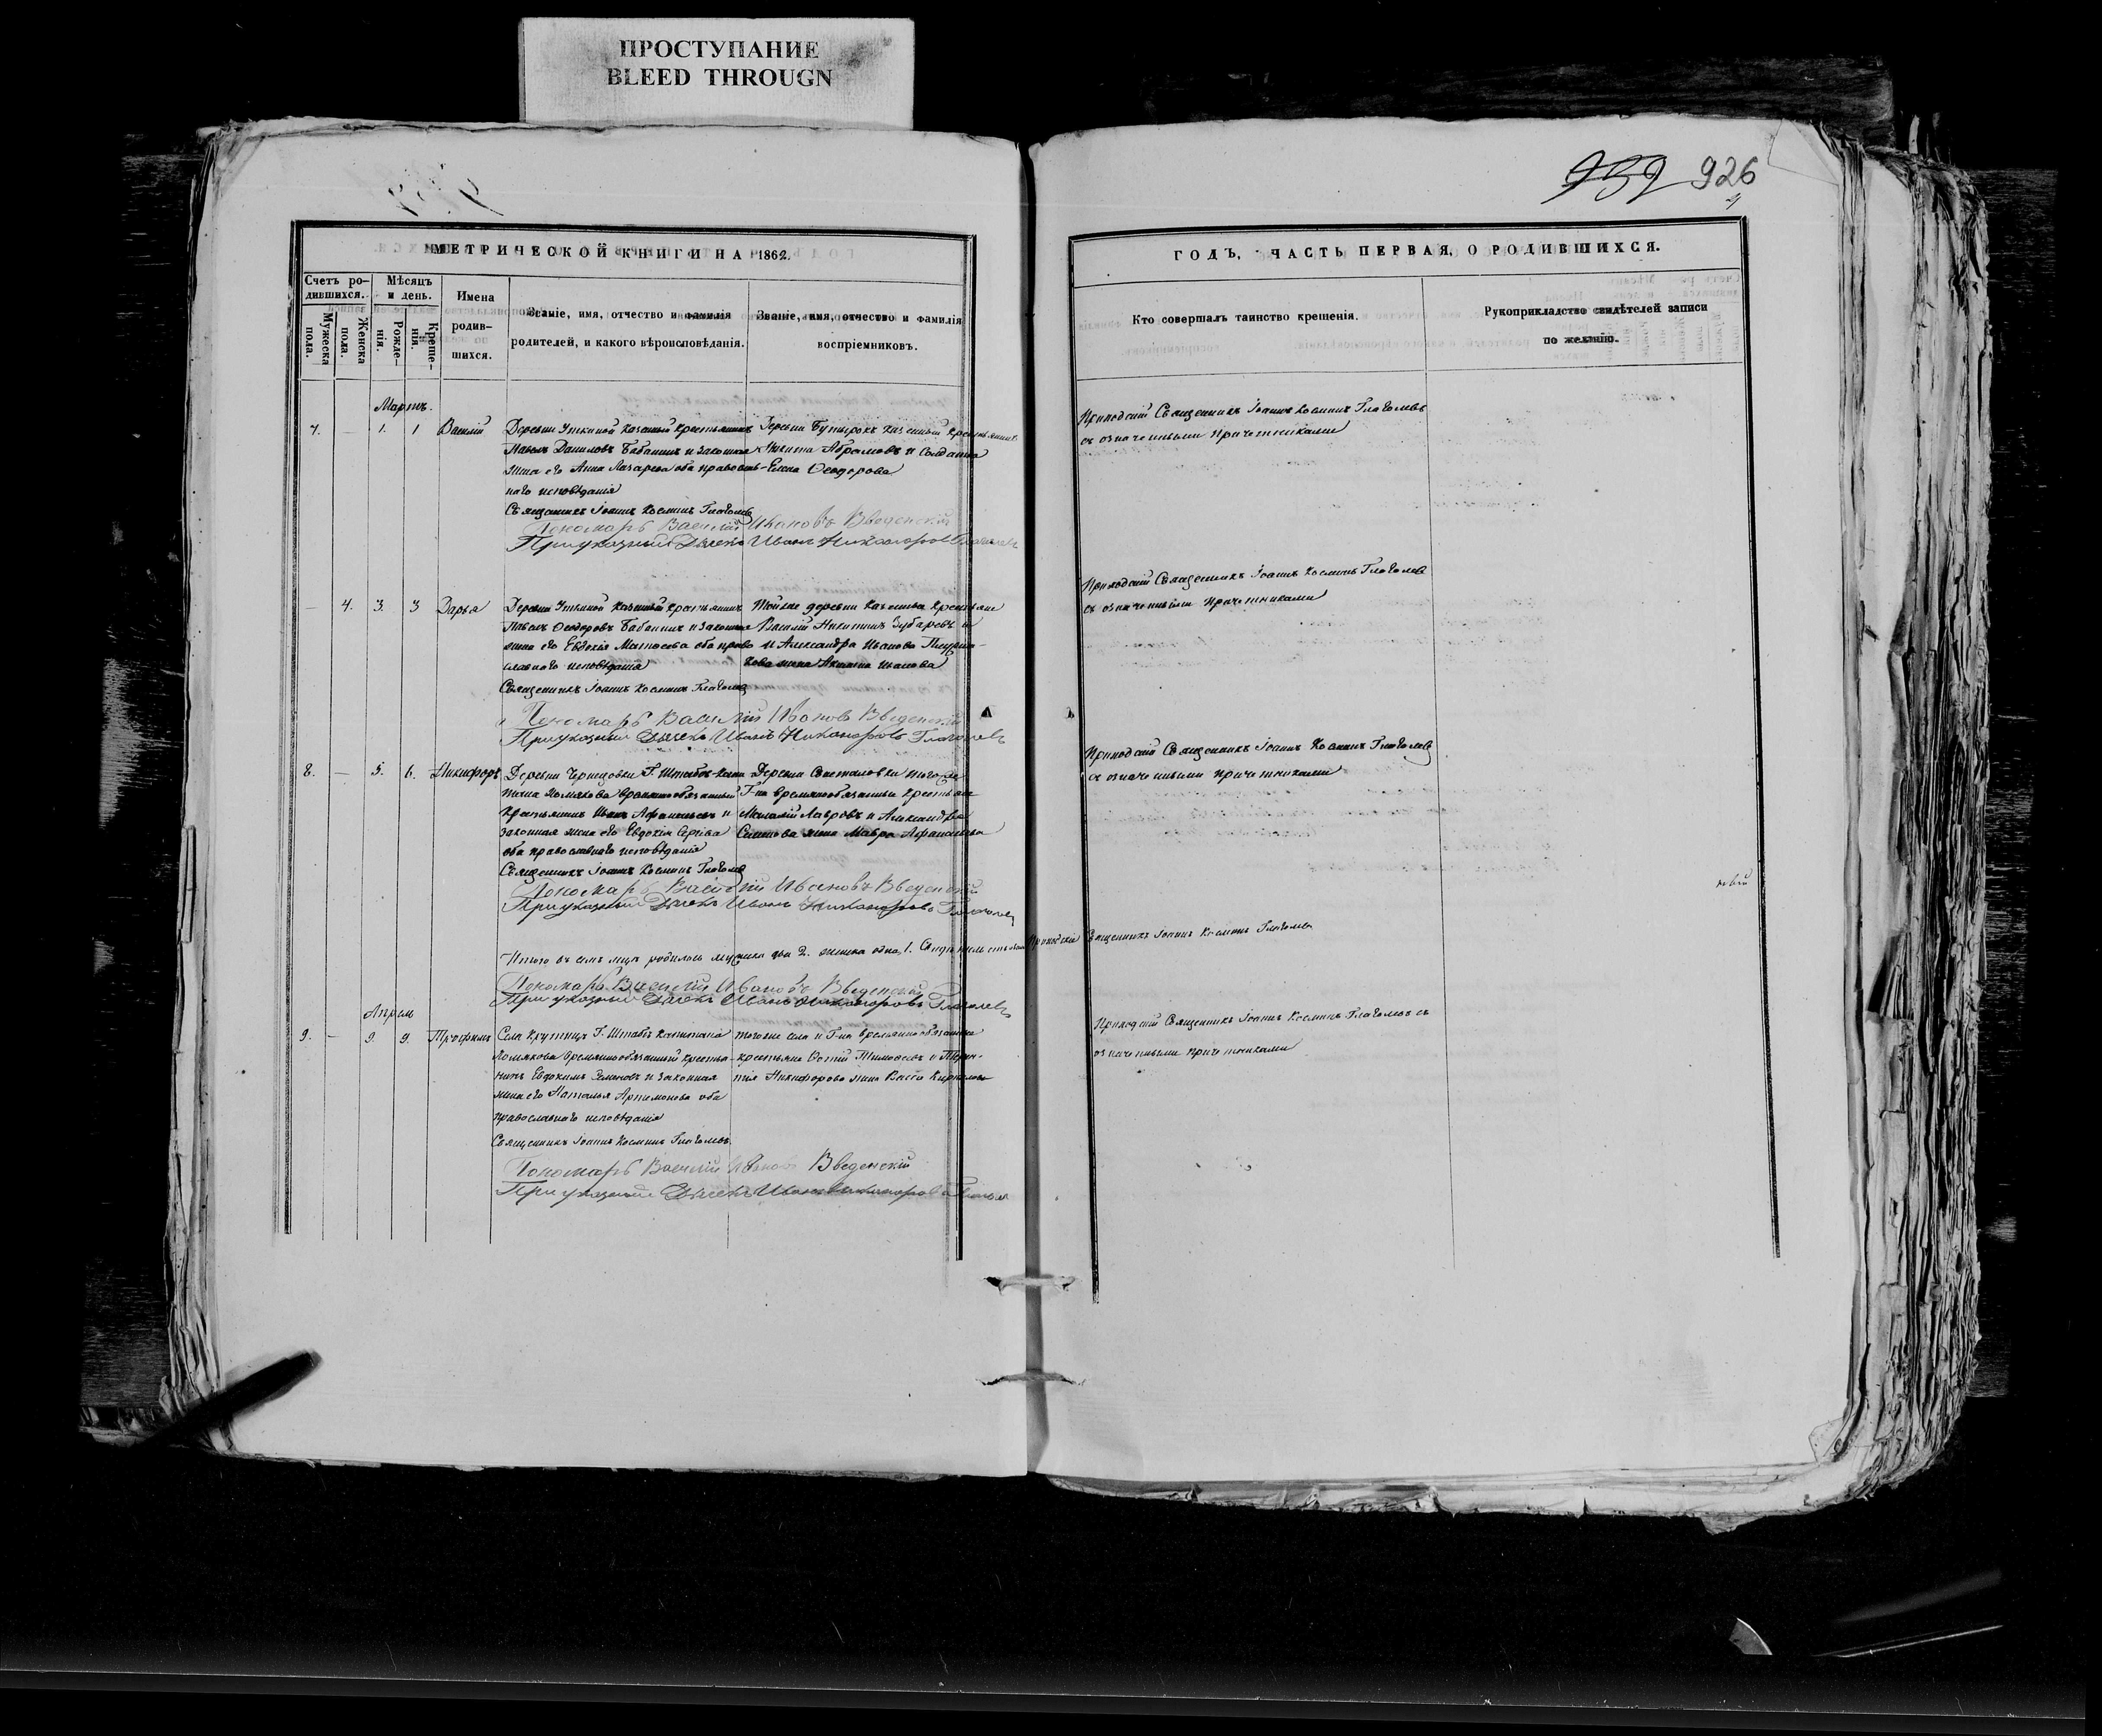 ПРОСТУПАНИЕ
BLEED THROUGN
939 926
МЕТРИЧЕСКОЙ КНИГИ НА 1862.
Счетъ ро-
дившихся.
Мужеска
пола.
Женска
пола.
Мѣсяцъ
и день.
Рожде-
нія.
Креще-
нія.
Имена
родив-
шихся.
Званіе, имя, отчество и фамилія
родителей, и какого вѣроисповѣданія.
Званіе, имя, отчество и фамилія
воспріемниковъ.
ГОДЪ, ЧАСТЬ ПЕРВАЯ, О РОДИВШИХСЯ.
Кто совершалъ таинство крещенія.
Рукоприкладство свидѣтелей записи
по желанію.
Мартъ.
7. — 1. 1 Василій
Деревни Уткиной казенный крестьянинъ
Павелъ Даниловъ Бабанинъ и законная
жена его Анна Лазарева оба православ-
наго исповѣданія
Священникъ Іоаннъ Косминъ Глаголевъ
Пономарь Василій Ивановъ Введенскій
Приуказный Дьячекъ Иванъ Никаноровъ Глаголевъ
Деревни Бутырокъ казенный крестьянинъ
Никита Абрамовъ и Солдатка
Елена Ѳеодорова
Приходскій Священникъ Іоаннъ Косминъ Глаголевъ
съ означенными причетниками
— 4. 3. 3 Дарья
Деревни Уткиной казенный крестьянинъ
Павелъ Ѳеодоровъ Бабанинъ и законная
жена его Евдокія Матѳеева оба право
славнаго исповѣданія
Священникъ Іоаннъ Косминъ Глаголевъ
Пономарь Василій Ивановъ Введенскій
Приуказный Дьячекъ Иванъ Никаноровъ Глаголевъ
Тойже деревни казенные крестьяне
Василій Никитинъ Зубаревъ
и Александра Иванова
жена Акулина Иванова
Приходскій Священникъ Іоаннъ Косминъ Глаголевъ
съ означенными причетниками
8. — 5. 6. Никифоръ
Деревни Г. Штабсъ-Капи
тана Хомякова временнообязанный
крестьянинъ Иванъ Афанасьевъ и
законная жена его Евдокія Сергіева
оба православнаго исповѣданія
Священникъ Іоаннъ Косминъ Глаголевъ
Пономарь Василій Ивановъ Введенскій
Приуказный Дьячекъ Иванъ Никаноровъ Глаголевъ
Деревни тогоже
Г-на временнообязанные крестьяне
Лавровъ и Александра
жена Мавра Афанасьева
Приходскій Священникъ Іоаннъ Косминъ Глаголевъ
съ означенными причетниками
Итого въ семъ м-цѣ родилось мужеска два 2. женска одна 1.
Приходскій Священникъ Іоаннъ Косминъ Глаголевъ
Пономарь Василій Ивановъ Введенскій
Приуказный Дьячекъ Иванъ Никаноровъ Глаголевъ
Апрель
9. — 9. 9. Трофимъ
Села Крутицъ Г. Штабсъ Капитана
Хомякова временнообязанный крестья-
нинъ Евдокимъ Семеновъ и законная
жена его Наталья Артемонова оба
православнаго исповѣданія
Священникъ Іоаннъ Косминъ Глаголевъ.
Пономарь Василій Ивановъ Введенскій
Приуказный Дьячекъ Иванъ Никаноровъ Глаголевъ
тогоже села и Г-на временнообязанные
крестьяне Тимоѳеевъ и Терен-
тія Никифорова жена Васса Кирилова
Приходскій Священникъ Іоаннъ Косминъ Глаголевъ съ
означенными причетниками